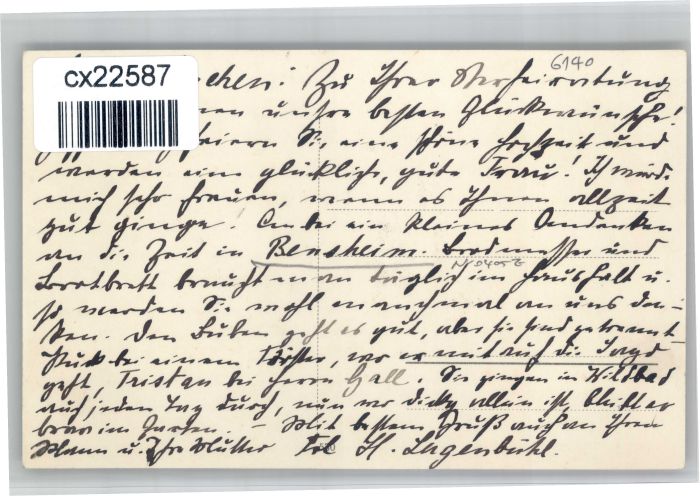 6140
cx22587
...chen! Zu Ihrer Verheiratung
unsre besten Glückwünsche!
feiern Sie eine schöne Hochzeit und
werden eine glückliche, gute Frau! Ich würde
mich sehr freuen, wenn es Ihnen allzeit
gut ginge. Anbei ein kleines Andenken
an die Zeit in Bensheim. Brodmesser und
Brotbrett braucht man täglich im Haushalt u.
so werden Sie wohl manchmal an uns den-
ken. Den Buben geht es gut, aber sie sind getrennt
Puck bei einem Förster, wo er mit auf die Jagd
geht, Tristan bei Herrn Gall. Sie gingen in Wildbad
auch jeden Tag durch, nun wo Dicky allein ist, bleibt er
brav im Garten. – Mit bestem Gruß auch an Ihren
Mann u. Ihre Mutter H. Lagenbühl.